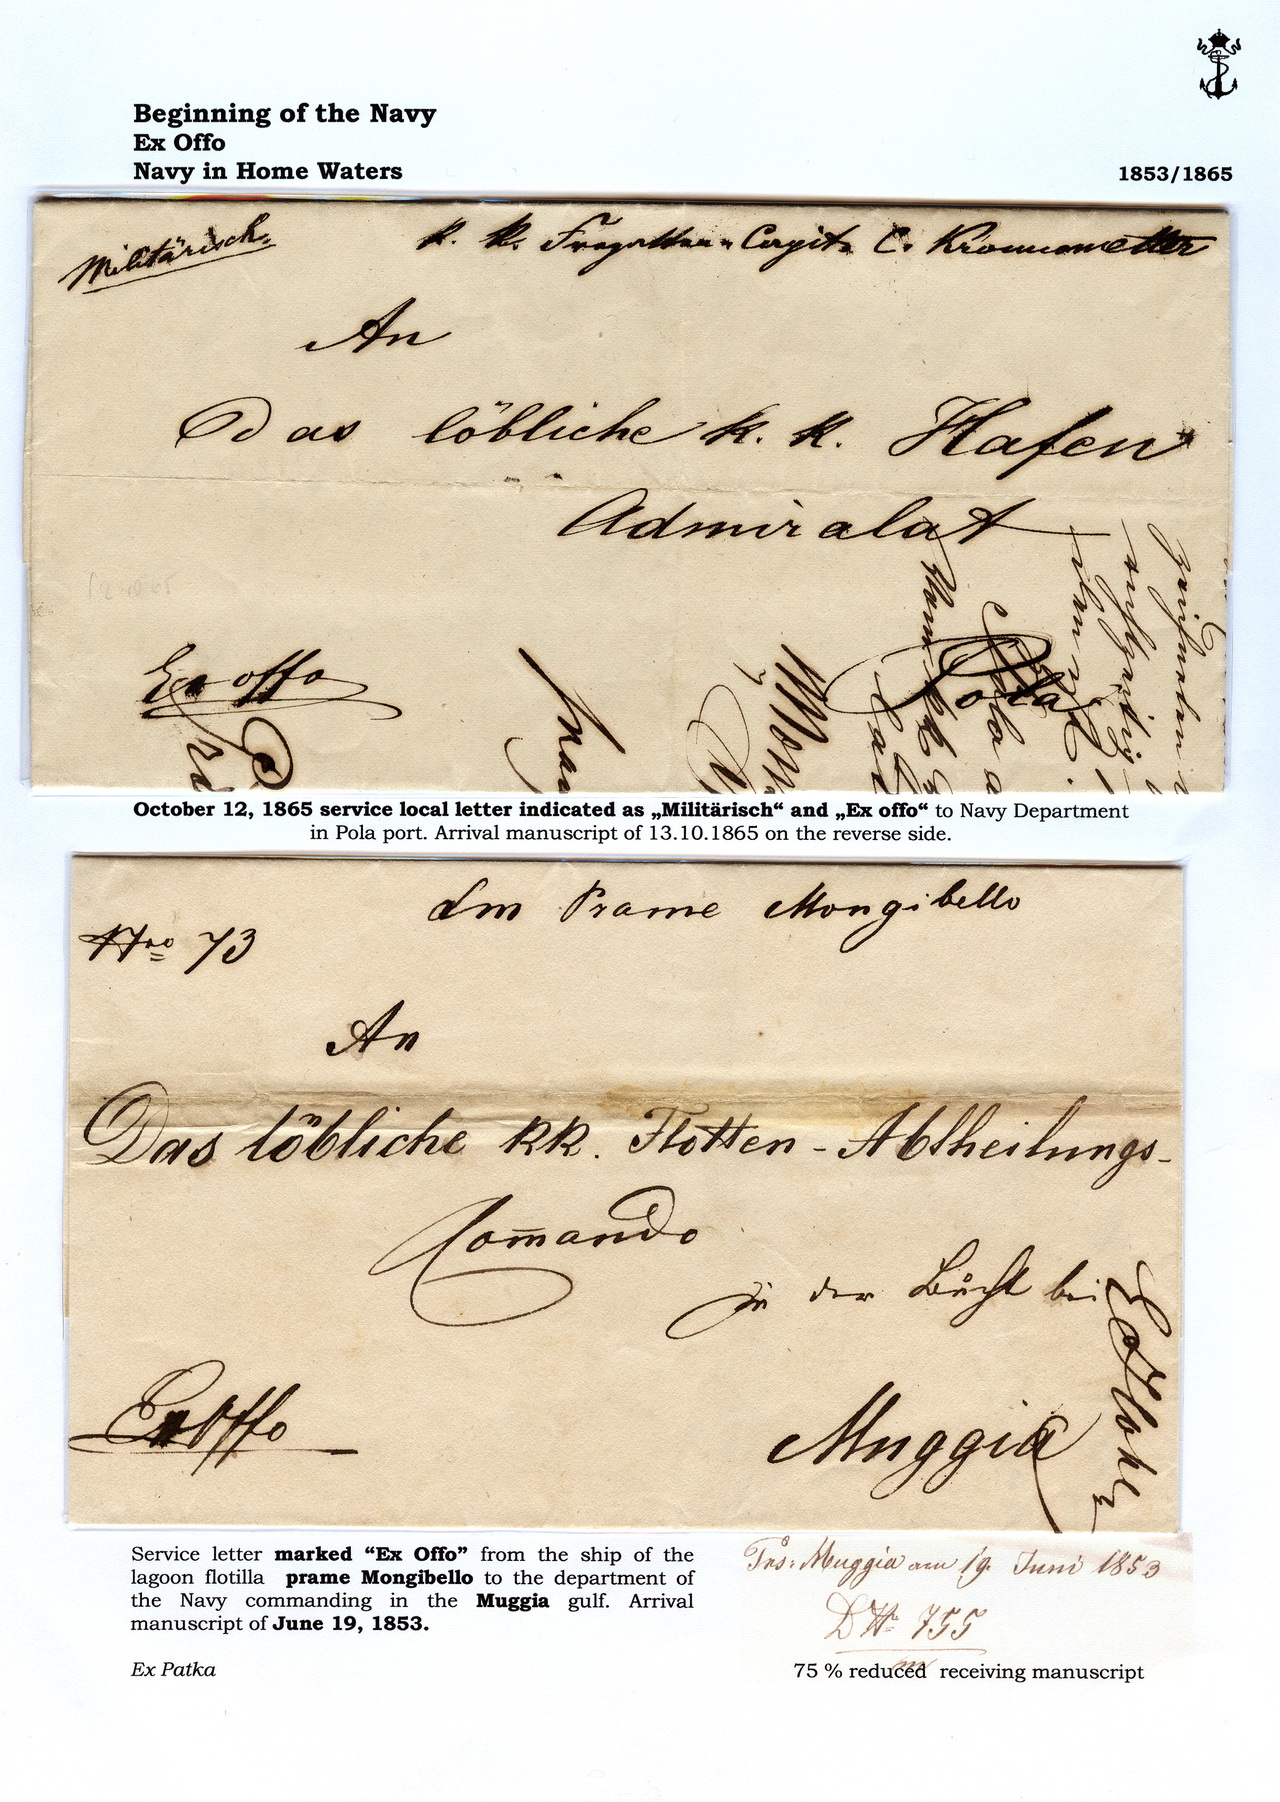 Beginning of the Navy
Ex Offo
Navy in Home Waters
1853/1865
Militärisch.
k. k. Fregatten-Capit. C. Kronnowetter
An
Das löbliche k. k. Hafen
Admiralat
Pola
Ex offo
October 12, 1865 service local letter indicated as „Militärisch“ and „Ex offo“ to Navy Department
in Pola port. Arrival manuscript of 13.10.1865 on the reverse side.
Am Prame Mongibello
Nro 73
An
Das löbliche kk. Flotten-Abtheilungs-
Com̄ando
in der Bucht bei
Muggia
Ex Offo
Service letter marked “Ex Offo” from the ship of the
lagoon flotilla prame Mongibello to the department of
the Navy commanding in the Muggia gulf. Arrival
manuscript of June 19, 1853.
Prs: Muggia am 19. Juni 1853
D Nr 755
Ex Patka
75 % reduced receiving manuscript